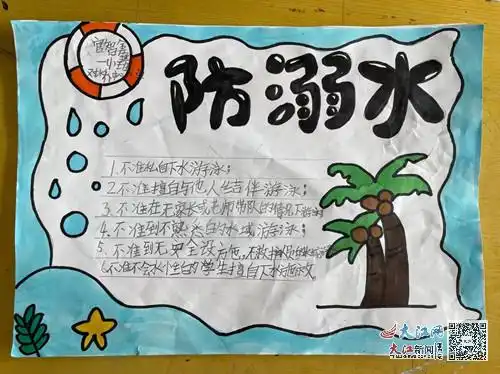 防溺水
1.不准私自下水游泳;
2.不准擅自与他人结伴游泳;
3.不准在无家长或老师带队的情况下游泳
4.不准到不熟悉的水域游泳;
5.不准到无安全设施、无救护员的水域游泳
6.不准不会水性的学生擅自下水施救
大江网
大江新闻